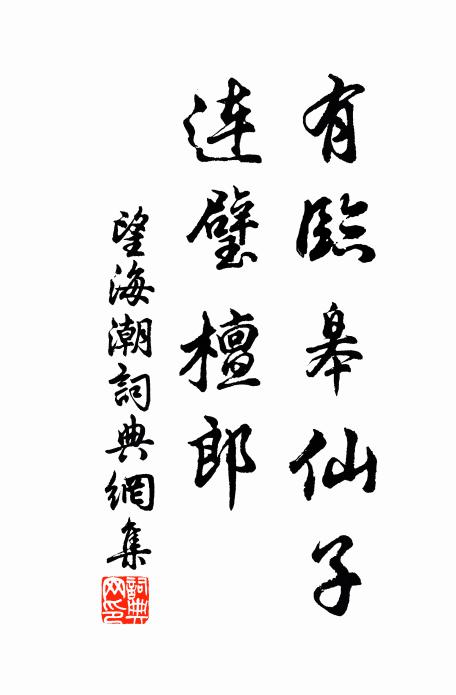 有臨皋仙子
连璧檀郎
望海潮詞典網集
詞典网印